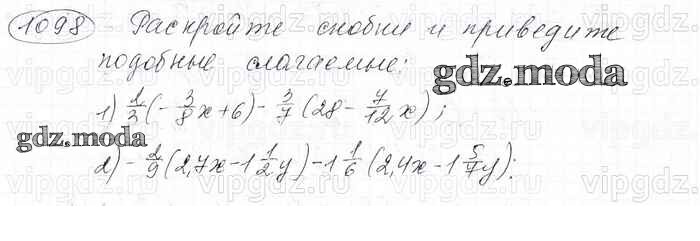 1098 Раскройте скобки и приведите
подобные слагаемые:
gdz.moda
1) 1/3 (-3/8 x + 6) - 3/7 (28 - 7/12 x);
gdz.moda
2) - 2/9 (2,7x - 1 1/2 y) - 1 1/6 (2,4x - 1 5/7 y):